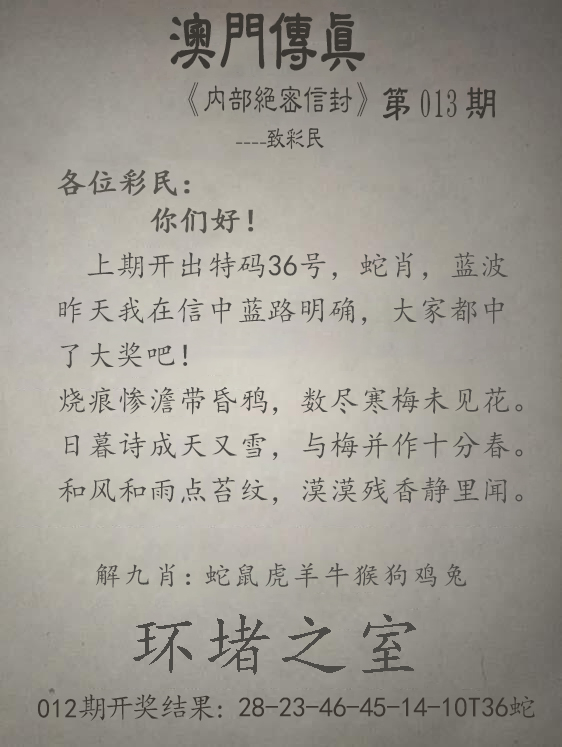 澳門傳眞
《内部絕密信封》第013期
----致彩民
各位彩民：
你们好！
上期开出特码36号，蛇肖，蓝波
昨天我在信中蓝路明确，大家都中
了大奖吧！
烧痕惨澹带昏鸦，数尽寒梅未见花。
日暮诗成天又雪，与梅并作十分春。
和风和雨点苔纹，漠漠残香静里闻。
解九肖：蛇鼠虎羊牛猴狗鸡兔
环堵之室
012期开奖结果：28-23-46-45-14-10T36蛇